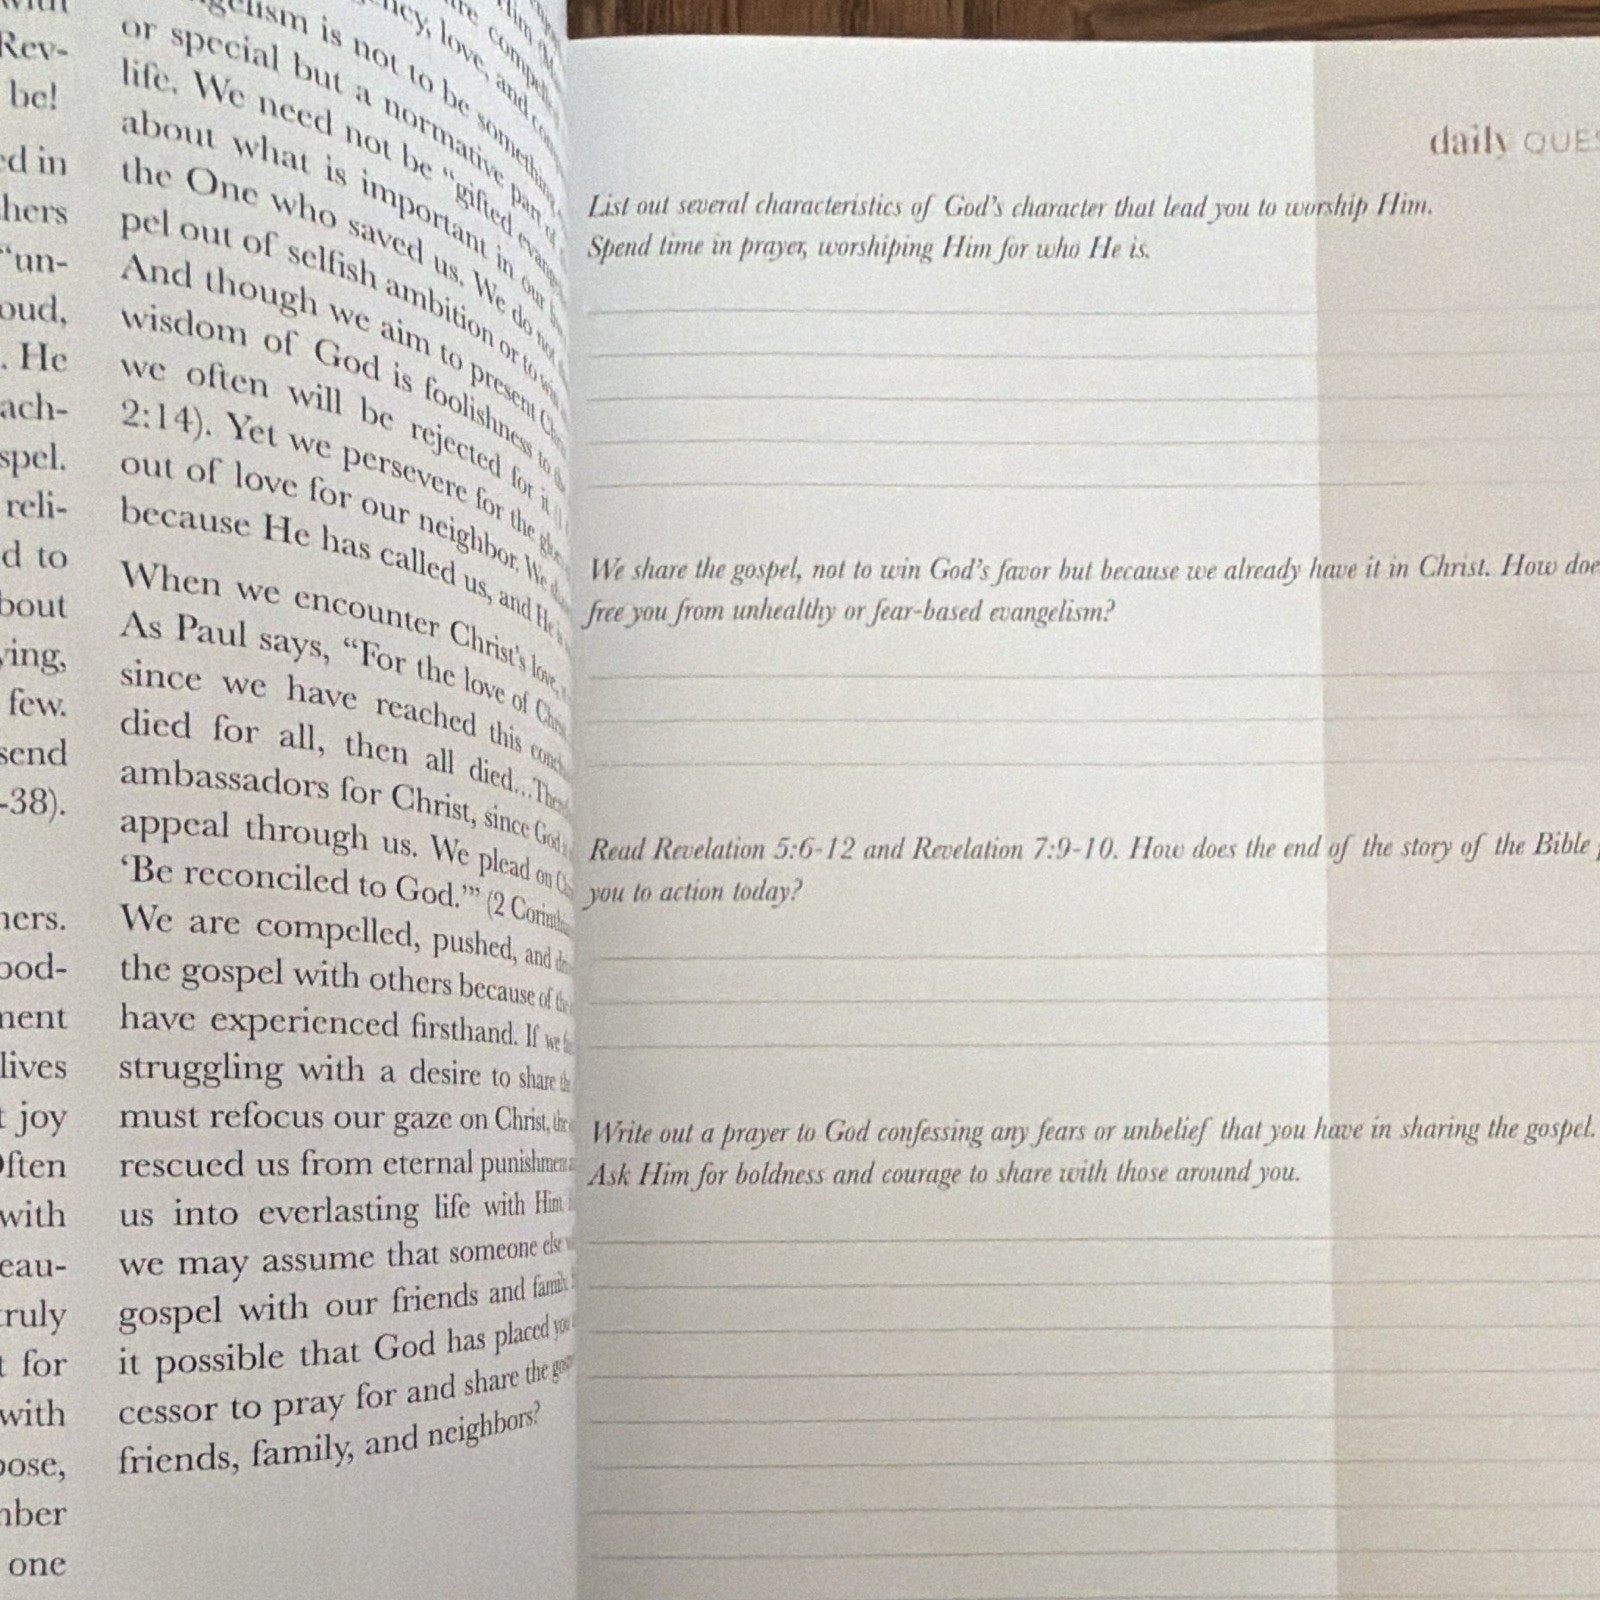 with
Rev-
be!
ed in
hers
"un-
oud,
. He
ach-
spel.
reli-
d to
bout
ying,
few.
send
-38).
ners.
ood-
ment
lives
t joy
Often
with
eau-
truly
t for
with
pose,
mber
one
is not to be something
or special but a normative part of
life. We need not be "gifted
about what is important in our
the One who saved us. We do not
pel out of selfish ambition or to
And though we aim to present
wisdom of God is foolishness to
we often will be rejected for it
2:14). Yet we persevere for the
out of love for our neighbor. We
because He has called us, and He
When we encounter Christ's love,
As Paul says, "For the love of
since we have reached this
died for all, then all died...
ambassadors for Christ, since God
appeal through us. We plead on
'Be reconciled to God.'" (2
We are compelled, pushed, and
the gospel with others because of
have experienced firsthand. If we
struggling with a desire to share
must refocus our gaze on Christ,
rescued us from eternal punishment
us into everlasting life with Him.
we may assume that someone else
gospel with our friends and family
it possible that God has placed you
cessor to pray for and share the
friends, family, and neighbors?
daily QUES
List out several characteristics of God's character that lead you to worship Him.
Spend time in prayer, worshiping Him for who He is.
We share the gospel, not to win God's favor but because we already have it in Christ. How doe
free you from unhealthy or fear-based evangelism?
Read Revelation 5:6-12 and Revelation 7:9-10. How does the end of the story of the Bible
you to action today?
Write out a prayer to God confessing any fears or unbelief that you have in sharing the gospel.
Ask Him for boldness and courage to share with those around you.